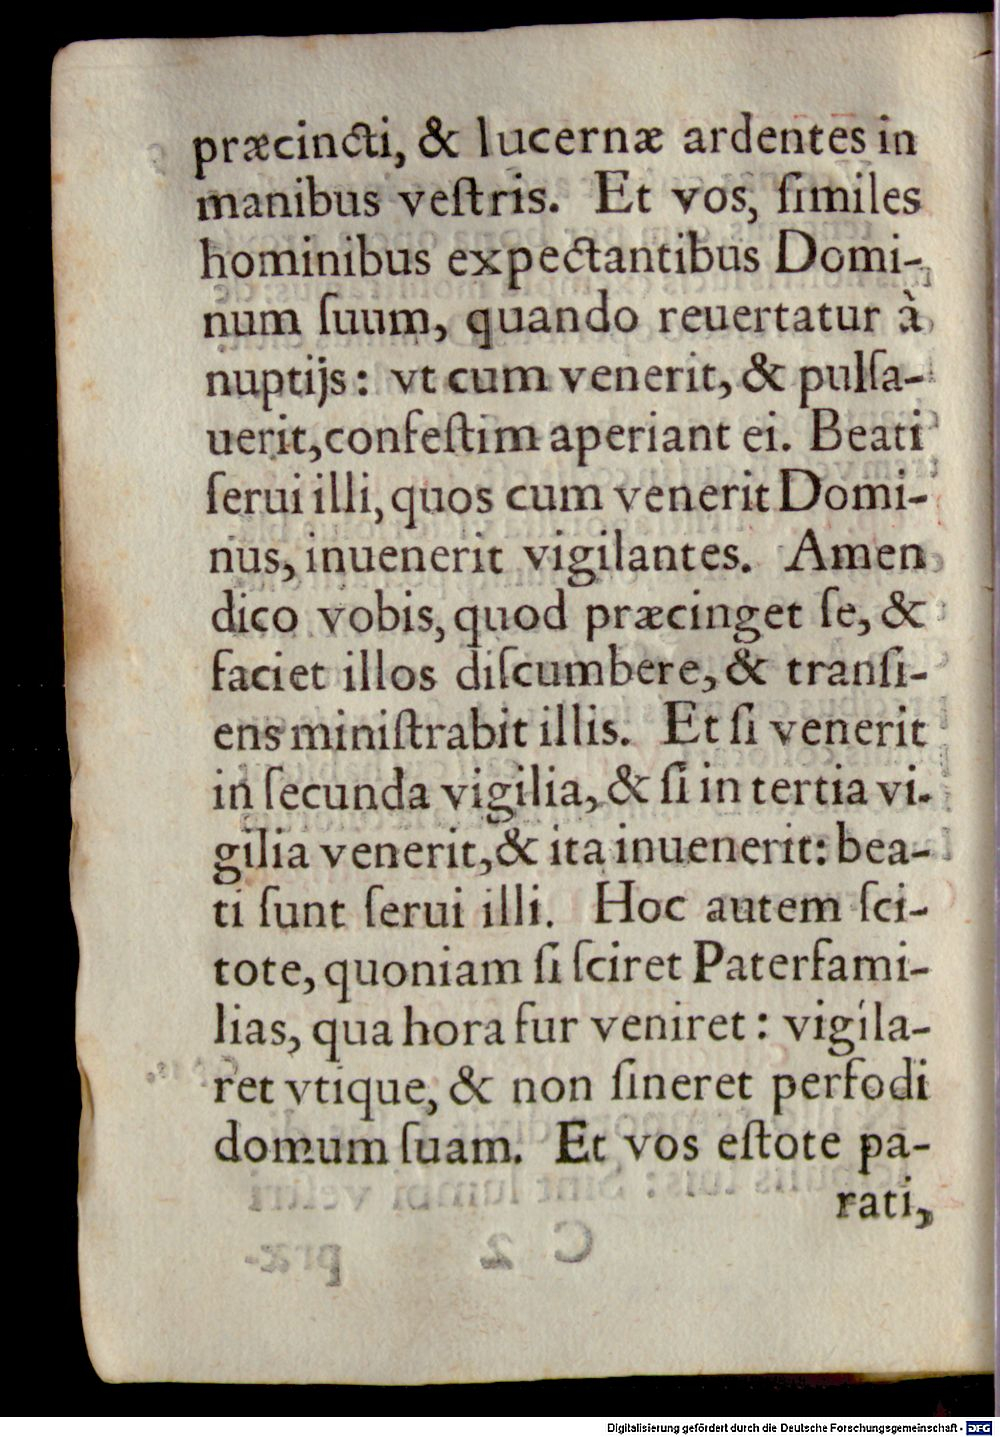 præcincti, & lucernæ ardentes in
manibus veſtris. Et vos, ſimiles
hominibus expectantibus Domi-
num ſuum, quando reuertatur à
nuptijs: vt cum venerit, & pulſa-
uerit, confeſtim aperiant ei. Beati
ſerui illi, quos cum venerit Domi-
nus, inuenerit vigilantes. Amen
dico vobis, quod præcinget ſe, &
faciet illos diſcumbere, & tranſi-
ens miniſtrabit illis. Et ſi venerit
in ſecunda vigilia, & ſi in tertia vi-
gilia venerit, & ita inuenerit: bea-
ti ſunt ſerui illi. Hoc autem ſci-
tote, quoniam ſi ſciret Paterfami-
lias, qua hora fur veniret: vigila-
ret vtique, & non ſineret perfodi
domum ſuam. Et vos eſtote pa-
rati,
Digitalisierung gefördert durch die Deutsche Forschungsgemeinschaft - DFG